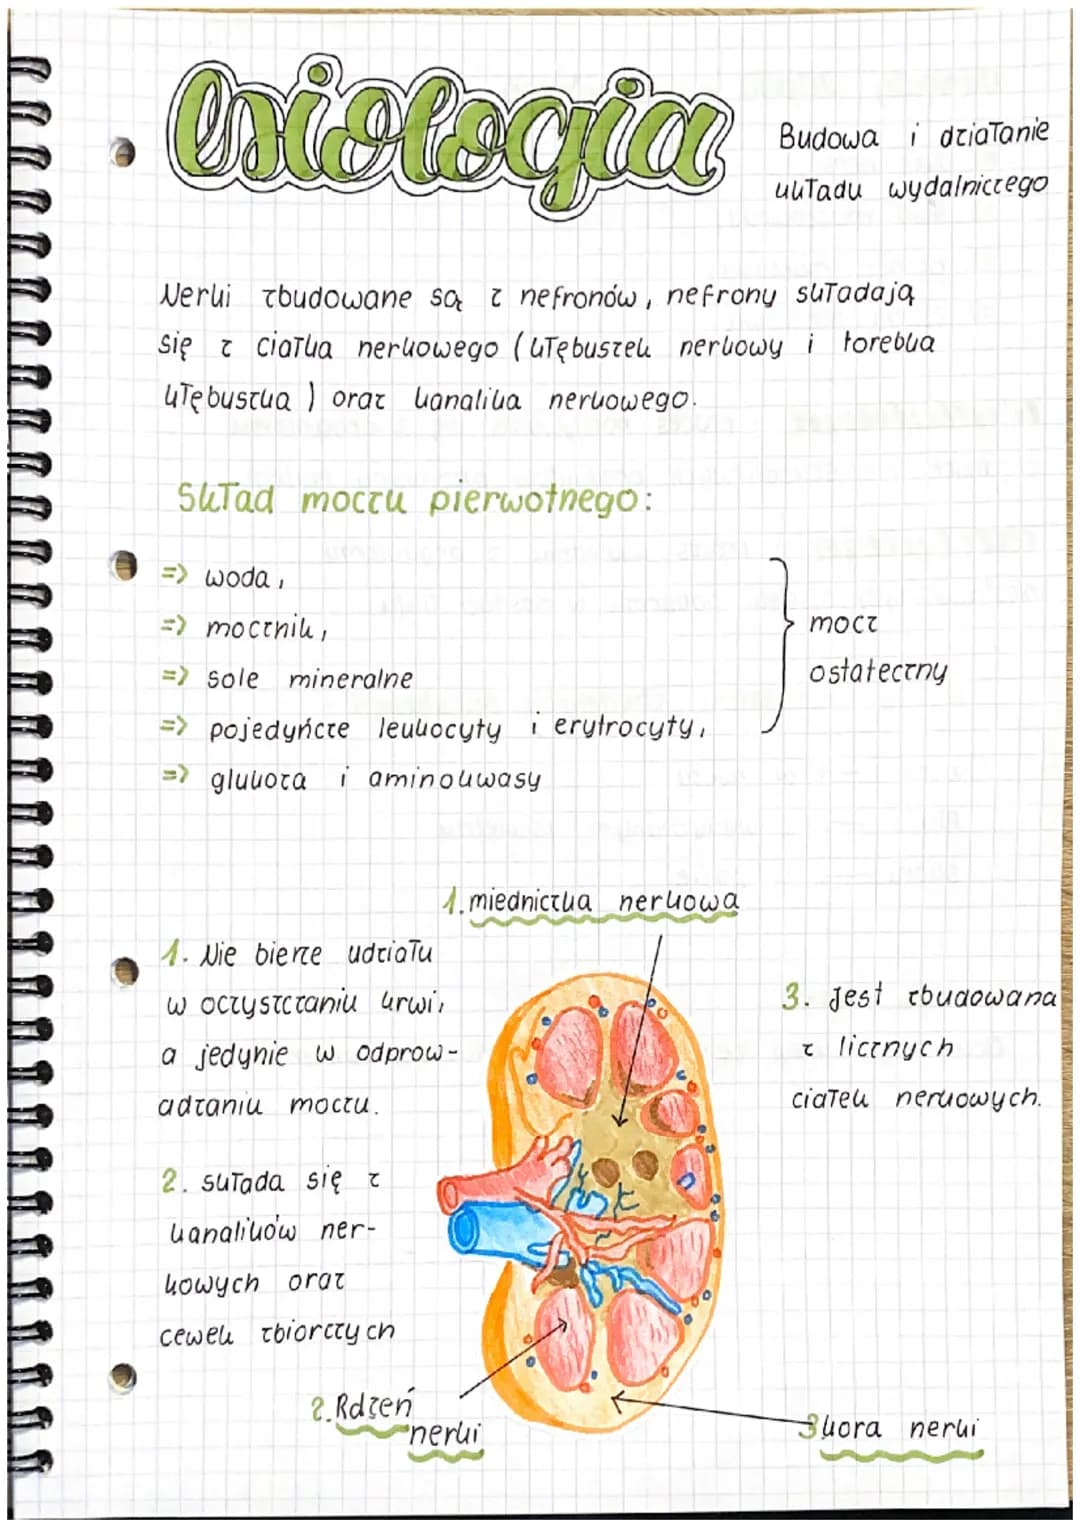 biologia
Budowa i działanie
układu wydalniczego
Nerki zbudowane są z nefronów, nefrony składają
się z ciałka nerkowego (kłębuszek nerkowy i torebka
kłębuszka) oraz kanalika nerkowego.
Skład moczu pierwotnego:
=> woda,
=> mocznik,
=> sole mineralne
=> pojedyńcze leukocyty i erytrocyty,
=> glukoza i aminokwasy
mocz
ostateczny
1. miedniczka nerkowa
1. Nie bierze udziału
w oczyszczaniu krwi,
a jedynie w odprow-
adzaniu moczu.
2. składa się z
kanalików ner-
kowych oraz
cewek zbiorczych
3. Jest zbudowana
z licznych
ciałek nerkowych.
2. Rdzeń
nerki
3 kora nerki